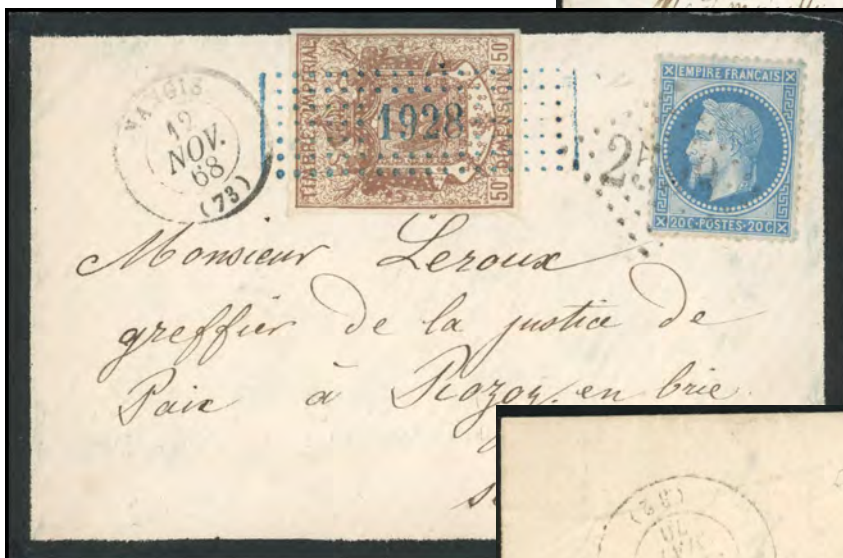 NANGIS
12
NOV.
68
(73)
TIMBRE IMPERIAL
50c DIMENSION 50c
1928
EMPIRE FRANÇAIS
20C·POSTES·20C
Monsieur Leroux
greffier de la justice de
Paix à Rozoy en brie
(82)